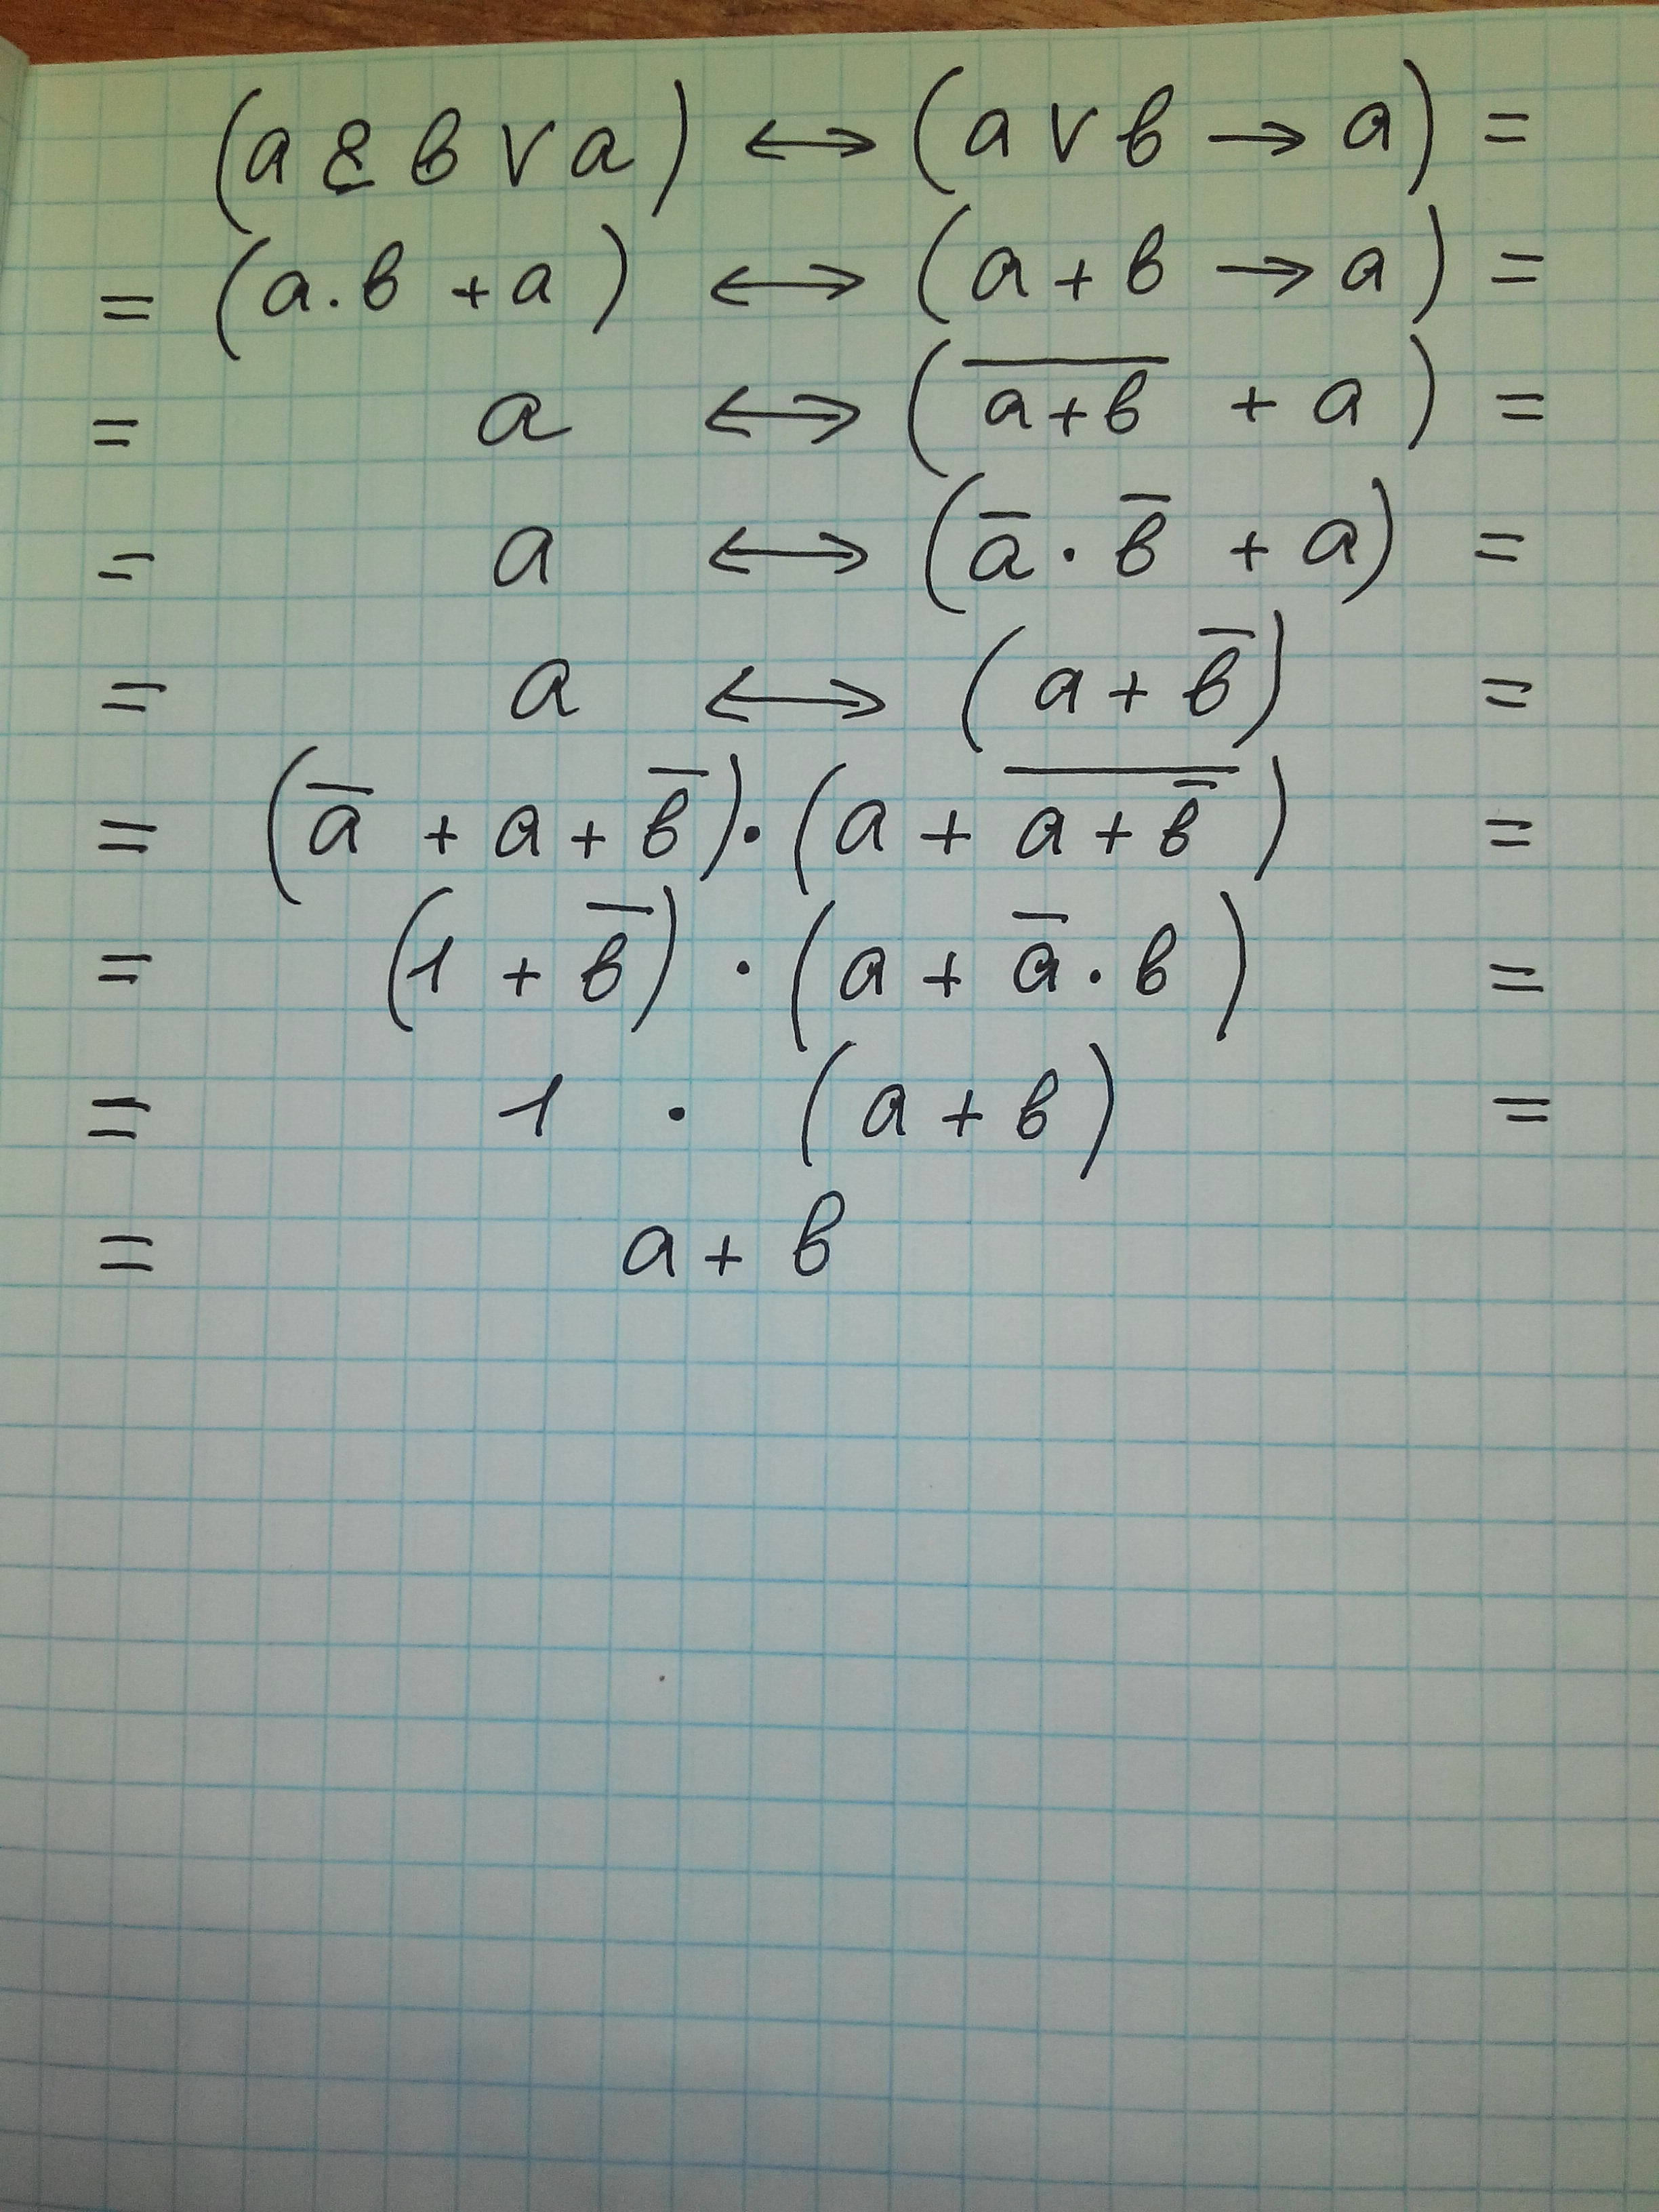 (a & b ∨ a) ↔ (a ∨ b → a) =
= (a · b + a) ↔ (a + b → a) =
= a ↔ (\overline{a + b} + a) =
= a ↔ (\overline{a} · \overline{b} + a) =
= a ↔ (a + \overline{b}) =
= (\overline{a} + a + \overline{b}) · (a + \overline{a + \overline{b}}) =
= (1 + \overline{b}) · (a + \overline{a} · b) =
= 1 · (a + b) =
= a + b